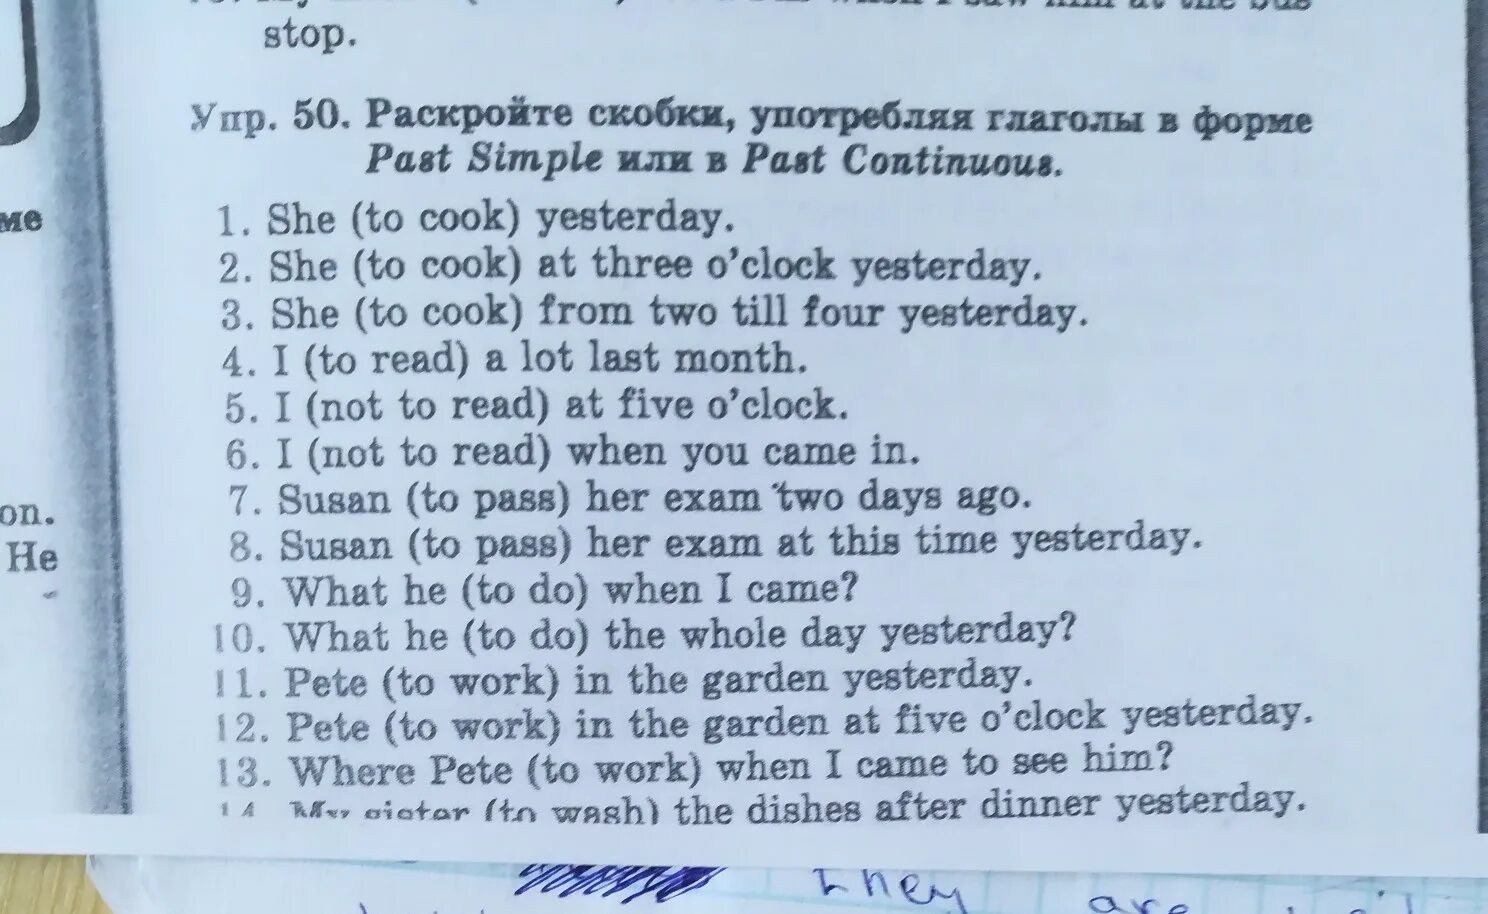 saw him at the bus
stop.
Упр. 50. Раскройте скобки, употребляя глаголы в форме
Past Simple или в Past Continuous.
1. She (to cook) yesterday.
2. She (to cook) at three o'clock yesterday.
3. She (to cook) from two till four yesterday.
4. I (to read) a lot last month.
5. I (not to read) at five o'clock.
6. I (not to read) when you came in.
7. Susan (to pass) her exam two days ago.
8. Susan (to pass) her exam at this time yesterday.
9. What he (to do) when I came?
10. What he (to do) the whole day yesterday?
11. Pete (to work) in the garden yesterday.
12. Pete (to work) in the garden at five o'clock yesterday.
13. Where Pete (to work) when I came to see him?
14. My sister (to wash) the dishes after dinner yesterday.
ме
on.
He
They are